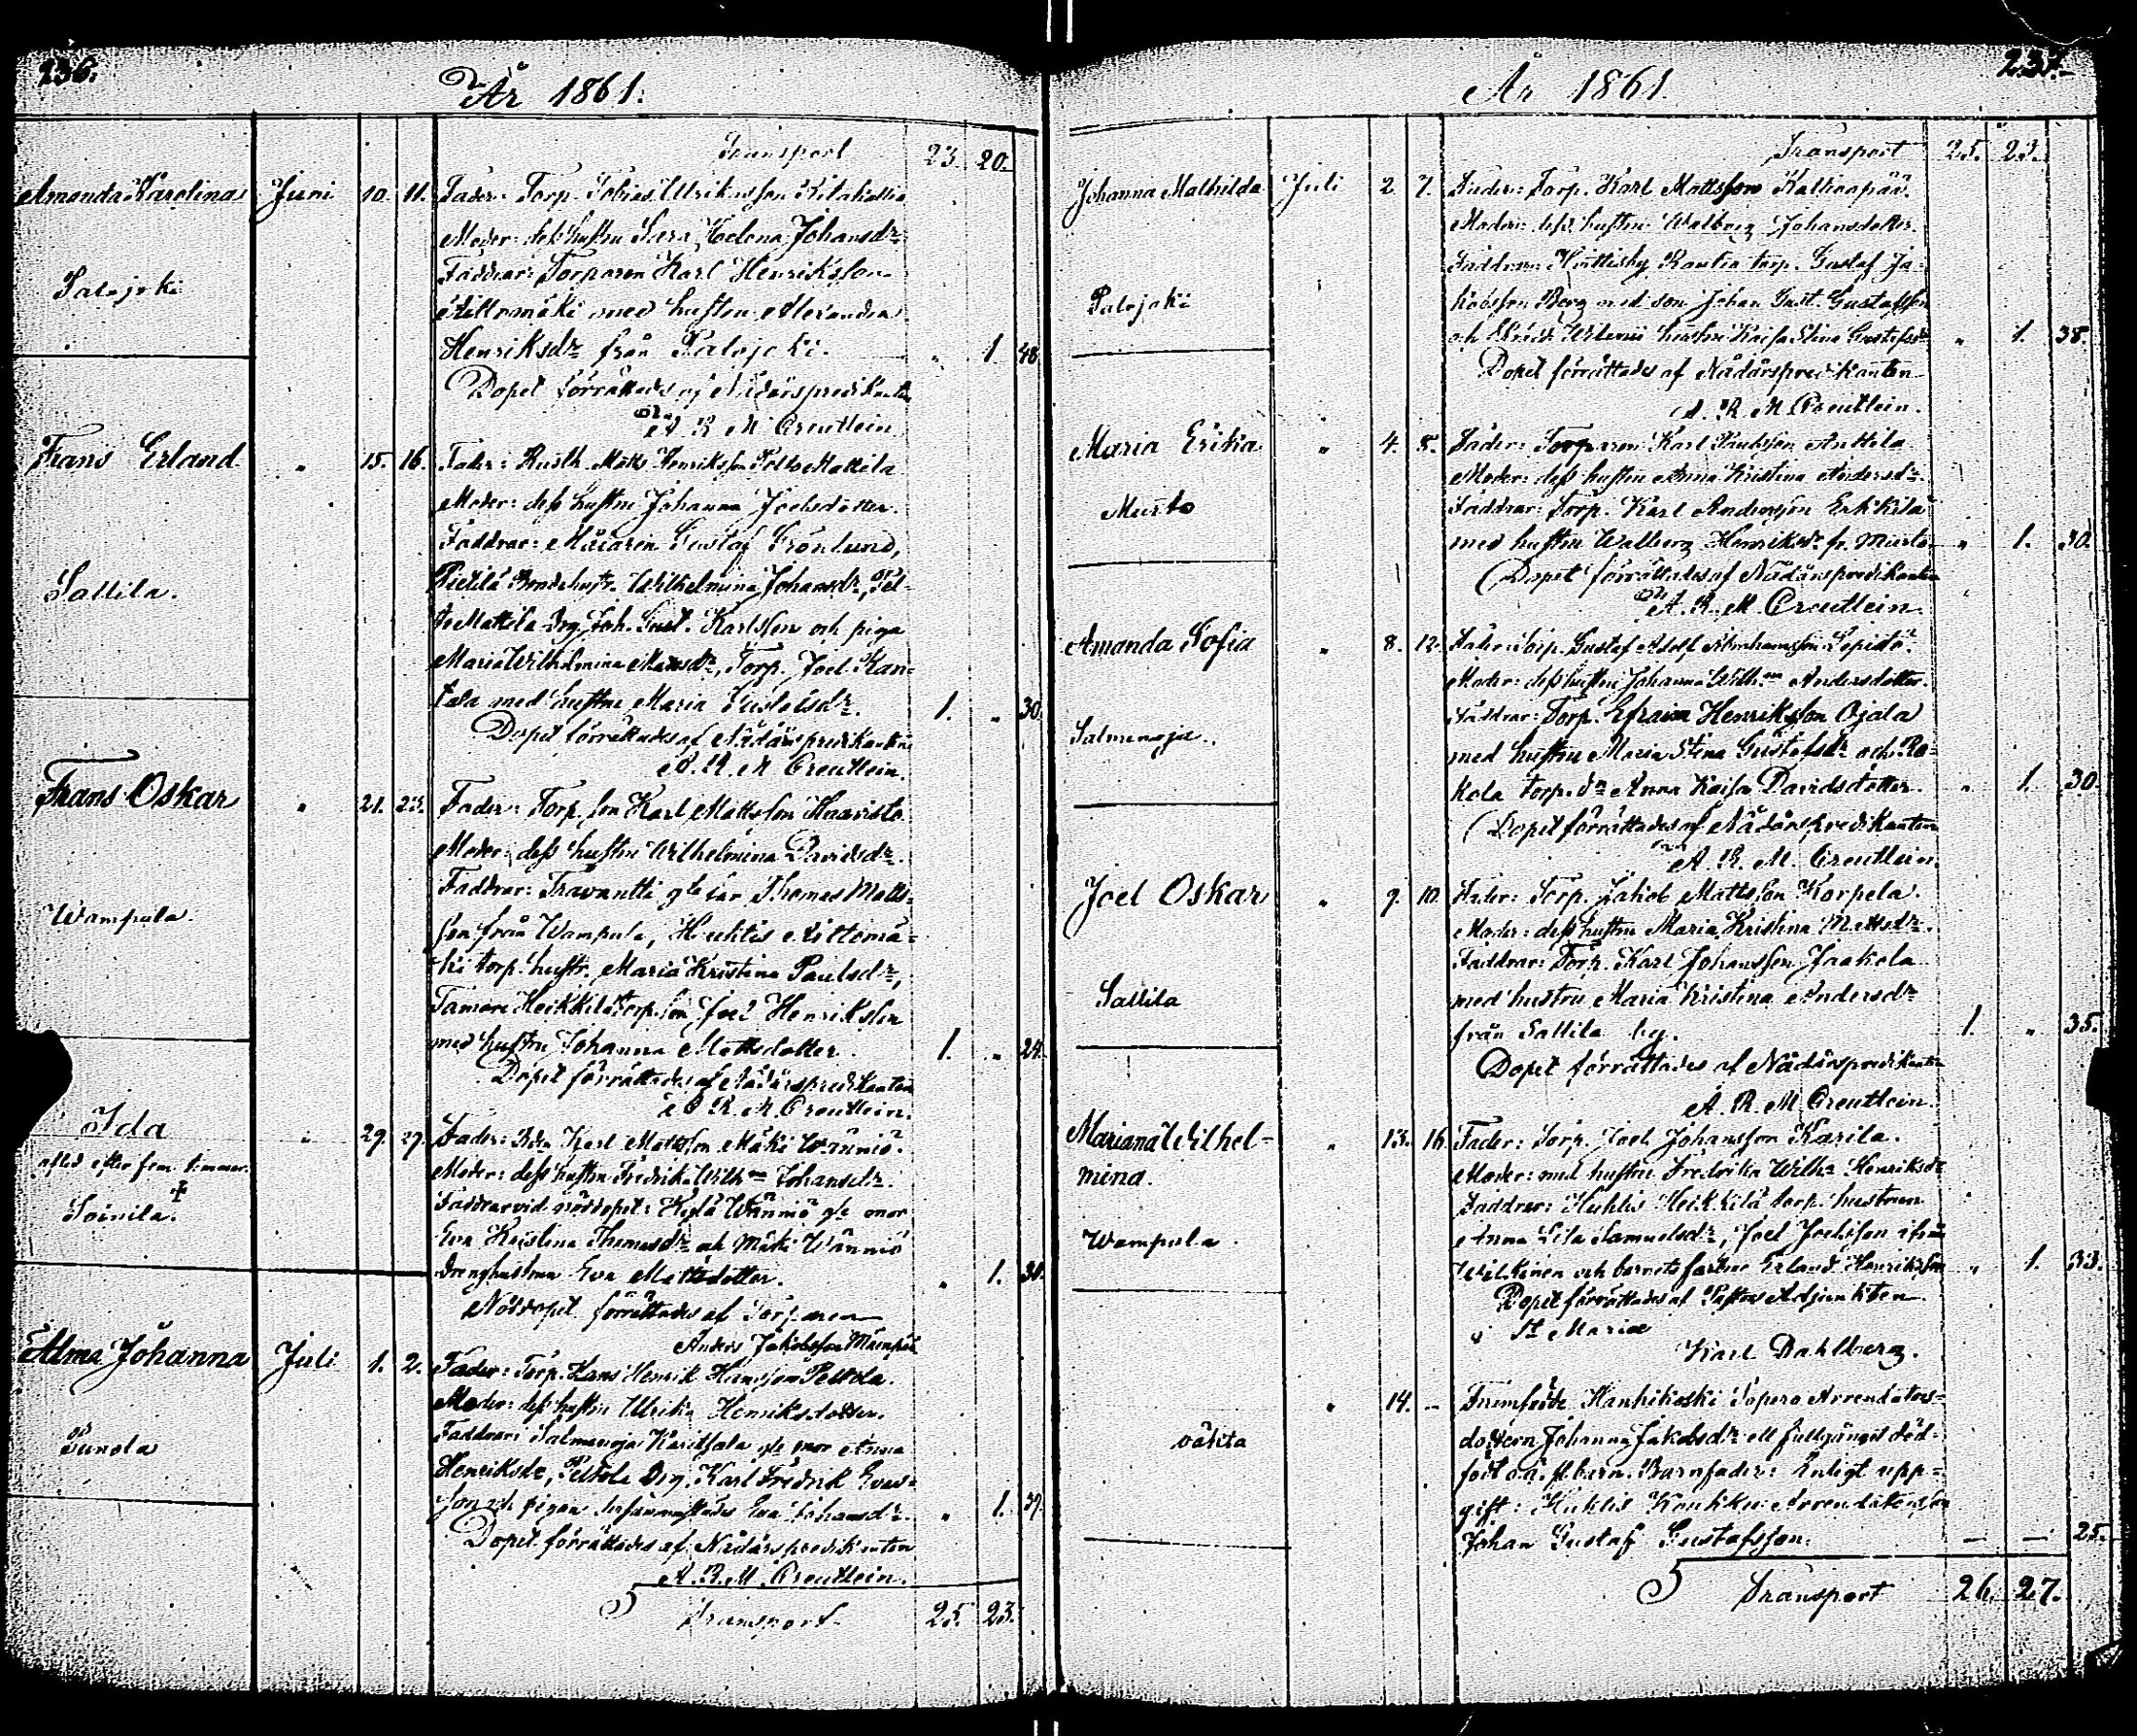 236.
År 1861.
Transport 23. 20.
Amanda Karolina Juni 10. 11. Fader: Torp. Tobias Ulriksson
Moder: dess hustru Sara Helena Johansdr
Faddrar: Torparen Karl Henriksson
Palojoki
Aittomäki med hustru Alexandra
Henriksdr från Palojoki. " 1. 48
Dopet förrättades af Nådårspredikanten
A R M Creutlein
Frans Erland " 15. 16. Fader: Rusth. Matts Henriksson Pelto Mattila
Moder: dess hustru Johanna Joelsdotter.
Faddrar: Målaren Gustaf Grönlund,
Sallila.
Pietilä Bondehustr. Wilhelmina Johansdr, Pel-
to Mattila Drg. Joh. Gust. Karlsson och piga
Maria Wilhelmina Mattsdr, Torp. Joel Kan-
tola med hustru Maria Gustafsdr. 1. " 30.
Dopet förrättades af Nådårspredikanten
A. R. M Creutlein.
Frans Oskar " 21. 23. Fader: Torp. son Karl Mattsson Haavisto
Moder: dess hustru Wilhelmina Davidsdr.
Faddrar: Travantti gle far Thomas Matts-
Wampula.
son från Wampula, Huhtis Aittomä-
ki torp. hustr. Maria Kristina Paulsdr,
Tamare Heikkilä torp. son Joel Henriksson
med hustru Johanna Mattsdotter. 1. " 24.
Dopet förrättades af Nådårspredikanten
A R. M. Creutlein.
Ida " 29. 29. Fader: Bdn Karl Mattsson Mäki Wänniö.
afled efter fem timmar.
Moder: dess hustru Fredrika Wilhna Johansdr.
Soinila. ‡
Faddrar vid nöddopet: Kylä Wänniö gle mor
Eva Kristina Thomasdr och Mäki Wänniö
drenghustrun Eva Mattsdotter. " 1. 31.
Nöddopet förrättades af Torparen
Anders Jakobsson
Alma Johanna Juli 1. 2. Fader: Torp. Hans Henrik Hansson Peltola.
Moder: dess hustru Ulrika Henriksdotter.
Faddrar: Salmenoja Karitsala gle mor Anna
Henriksdr, Peltola Drg. Karl Fredrik Evers-
son och pigan Eva Johansdr. " 1. 37.
Dopet förrättades af Nådårspredikanten
A. R. M. Creutlein.
Transport. 25. 23.
237.
År 1861
Transport 25. 23.
Johanna Mathilda Juli 2. 7. Fader: Torp. Karl Mattsson Kallionpää.
Moder: dess hustru Walborg Johansdotter.
Faddrar: Torp. Gustaf Ja-
Palojoki
kobsson Berg med son Johan Gust. Gustafsson
och hustru Kaisa Stina Gustafsdr " 1. 38.
Dopet förrättades af Nådårspredikanten
A. R. M. Creutlein.
Maria Erika " 4. 8. Fader: Torparen Karl Paulsson Anttila
Moder: dess hustru Anna Kristina Andersdr.
Murto
Faddrar: Torp. Karl Andersson Erkkilä
med hustru Walborg Henriksdr fr. Murto " 1. 30.
Dopet förrättades af Nådårspredikanten
A. R. M. Creutlein.
Amanda Sofia " 8. 12. Fader: Torp. Gustaf Adolf Abrahamsson Lepistö.
Moder: dess hustru Johanna Wilh.na Andersdotter.
Faddrar: Torp. Efraim Henriksson Ojala
Salmenoja.
med hustru Maria Stina Gustafsdr och Ko-
kola torp. dr Anna Kaisa Davidsdotter. " 1. 30.
Dopet förrättades af Nådårspredikanten
A. R. M. Creutlein.
Joel Oskar " 9. 10. Fader: Torp. Jakob Mattsson Korpela.
Moder: dess hustru Maria Kristina Mattsdr.
Faddrar: Torp. Karl Johansson Jaakola
Sallila
med hustru Maria Kristina Andersdr
från Sallila by. 1. " 35.
Dopet förrättades af Nådårspredikanten
A. R. M Creutlein.
Mariana Wilhel- " 13. 16. Fader: Torp. Joel Johansson Karila.
mina.
Moder: med hustru Fredrika Wilhna Henriksdr
Faddrar: Huhtis Heikkilä torp. hustrun
Wampula.
Anna Lisa Samuelsdr, Joel Joelsson ifrån
Wilkinen och barnets farbror Erland Henriksson " 1. 33.
Dopet förrättades af Pastors Adjunkten
i St Mariæ
Karl Dahlberg.
" 14. – Framfödde Hanhikoski Arrendators-
oäkta
dottern Johanna Jakobsdr ett fullgånget död-
födt o.ä. fl. barn. Barnfader: Enligt upp-
gift: Huhtis Kouhku Arrendatorson
Johan Gustaf Gustafsson. – – 25.
Transport 26. 27.